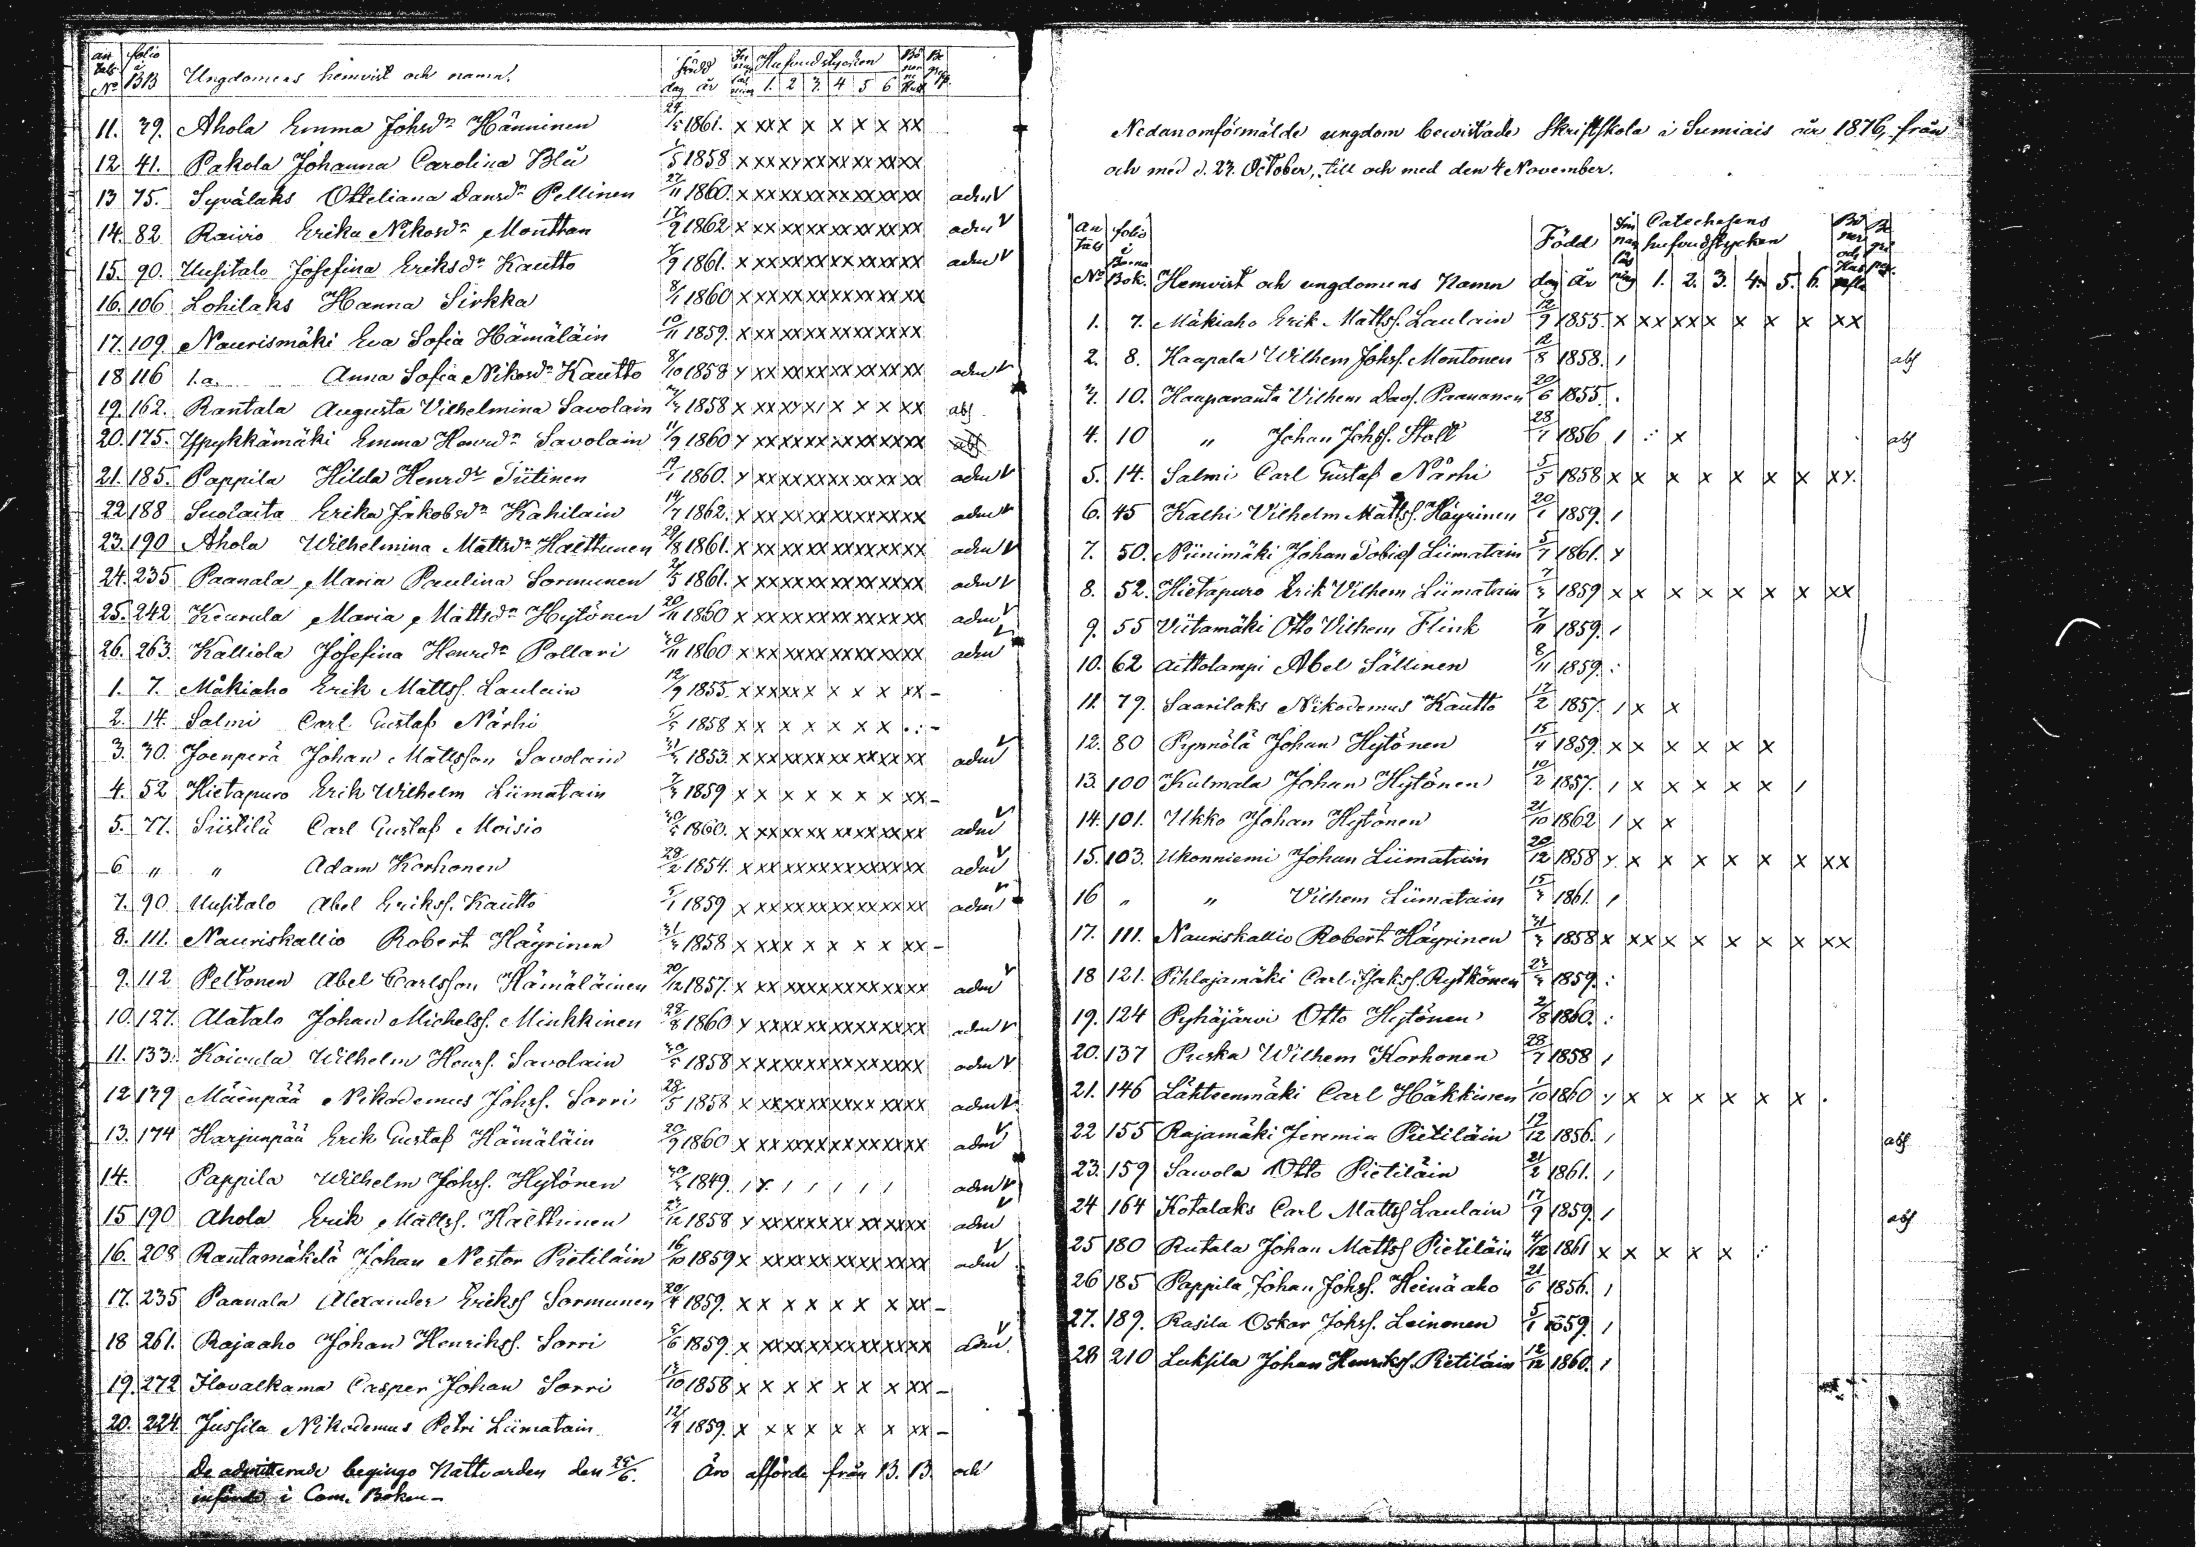 Ungdomens hemvist och namn. Född dag år Hufvudstycken 1. 2 3. 4 5 6
11. 39. Ahola Emma Johsdr Hänninen 1861. x xxx x x x x xx
12 41. Pakola Johanna Carolina Blå 1858 x xx xx xx xx xx xx
13 75. Syvälaks Otteliana Danrdr Pellinen 27/11 1860. x xx xx xx xx xx xx adm V
14. 82 Raivio Erika Nikosdr Monttan 17/9 1862 x xx xx xx xx xx xx adm V
15. 90. Uusitalo Josefina Eriksdr Kautto 1861. x xx xx xx xx xx xx adm V
16. 106 Lohilaks Hanna Sirkka 8/1 1860 x xx xx xx xx xx xx
17. 109. Naurismäki Eva Sofia Hämäläin 10/11 1859. x xx xx xx xx xx xx
18 116 l.a. Anna Sofia Nikosdr Kautto 8/10 1858 x xx xx xx xx xx xx adm V
19. 162. Rantala Augusta Vilhelmina Savolain 1858 x x x x xx abs
20. 175. Yspykkämäki Emma Henrdr Savolain 11/9 1860 x xx xx xx xx xx xx abs
21. 185. Pappila Hilda Henrdr Tiitinen 19/1 1860. x xx xx xx xx xx xx adm V
22 188 Suolaita Erika Jakobsdr Kahilain 14/7 1862. x xx xx xx xx xx xx adm V
23. 190 Ahola Wilhelmina Mattsdr Halttunen 29/8 1861. x xx xx xx xx xx xx adm V
24. 235 Paanala Maria Paulina Sormunen 1861. x xx xx xx xx xx xx adm V
25. 242 Keurula Maria Mattsdr Hytönen 20/11 1860 x xx xx xx xx xx xx adm V
26. 263. Kalliola Josefina Henrdr Pollari 30/11 1860 x xx xx xx xx xx xx adm V
1. 7. Mäkiaho Erik Mattss. Laulain 12/9 1855. x xx xx x x x x xx -
2. 14. Salmi Carl Gustaf Närhi 5/5 1858 x x x x x x x . : -
3. 30. Joenperä Johan Mattsson Savolain 1853. x xx xx xx xx xx xx adm V
4. 52 Hietapuro Erik Wilhelm Liimatain 7/3 1859 x x x x x x x xx -
5. 77. Siistilä Carl Gustaf Moisio 1860. x xx xx xx xx xx xx adm V
6 " " Adam Korhonen 29/2 1854. x xx xx xx xx xx xx adm V
7. 90 Uusitalo Abel Erikss. Kautto 5/1 1859 x xx xx xx xx xx xx adm V
8. 111. Nauriskallio Robert Häyrinen 31/3 1858 x xxx x x x x x xx -
9. 112 Peltonen Abel Carlsson Hämäläinen 20/12 1857. x xx xx xx xx xx xx adm V
10. 127. Alatalo Johan Michelss. Minkkinen 29/8 1860 x xx xx xx xx xx xx adm V
11. 133. Koivula Wilhelm Henrs. Savolain 1858 x xx xx xx xx xx xx adm V
12 139 Mäenpää Nikodemus Johss. Sorri 28/5 1858 x xx xx xx xx xx xx adm V
13. 174 Harjunpää Erik Gustaf Hämäläin 20/9 1860 x xx xx xx xx xx xx adm V
14. Pappila Wilhelm Johss. Hytönen 1849. adm V
15 190 Ahola Erik Mattss. Halttunen 1858 x xx xx xx xx xx xx adm V
16. 208 Rautamäkelä Johan Nestor Pietiläin 16/10 1859 x xx xx xx xx xx xx adm V
17. 235 Paanala Alexander Erikss Sormunen 1859. x x x x x x x xx -
18 261. Rajaaho Johan Henrikss. Sorri 5/6 1859. x xx xx xx xx xx xx adm. V
19. 272 Ilovalkama Casper Johan Sorri 1858 x x x x x x x xx -
20. 224. Jussila Nikodemus Petri Liimatain 1859. x x x x x x x xx -
De admitterade begingo Nattvarden den 25/6. Äro afförde från B. B. och
införde i Com. Boken -
Nedanomförmälde ungdom bewistade Skriftskola i Sumiais år 1876, från
och med d. 23. October, till och med den 4 November.
No Hemvist och ungdomens Namn Född dag år Catechesens hufvudstycken 1. 2. 3. 4. 5. 6.
1. 7. Mäkiaho Erik Mattss. Laulain 12/9 1855. x xx xx x x x x xx
2. 8. Haapala Wilhem Johss. Montonen 12/8 1858. / abs
3. 10. Haaparanta Vilhem Davs. Paananen 20/6 1855. .
4. 10 " Johan Johss. Stoll 28/1 1856 / : x abs
5. 14. Salmi Carl Gustaf Närhi 5/5 1858 x x x x x x x xx.
6. 45 Kalhi Vilhelm Mattss. Häyrinen 20/1 1859. /
7. 50. Niinimäki Johan Tobiess Liimatain 5/7 1861. x
8. 52. Hietapuro Erik Vilhem Liimatain 7/3 1859 x x x x x x x xx
9. 55 Viitamäki Otto Vilhem Flink 7/11 1859. /
10. 62 Aittolampi Abel Sällinen 8/11 1859. :
11. 79. Saarilaks Nikodemus Kautto 17/2 1857. / x x
12. 80 Pynnölä Johan Hytönen 1859. x x x x x x
13. 100 Kulmala Johan Hytönen 10/2 1857. / x x x x x /
14. 101. Ukko Johan Hytönen 21/10 1862 / x x
15. 103. Ukonniemi Johan Liimatain 20/12 1858 x x x x x x x xx
16 " " Vilhem Liimatain 15/3 1861. /
17. 111. Nauriskallio Robert Häyrinen 31/3 1858 x xx x x x x x xx
18 121. Pihlajamäki Carl Isakss. Rytkönen 1859. :
19. 124 Pyhäjärvi Otto Hytönen 2/8 1860. :
20. 137 Puska Wilhem Korhonen 28/7 1858 /
21. 146 Lähteenmäki Carl Häkkinen 1/10 1860 x x x x x x .
22 155 Rajamäki Jeremia Pietiläin 19/12 1856. / abs
23. 159 Sawola Otto Pietiläin 21/2 1861. /
24 164 Kotalaks Carl Mattss Laulain 17/9 1859. / abs
25 180 Rutala Johan Mattss Pietiläin 4/12 1861 x x x x x :
26 185 Pappila Johan Johss. Heinäaho 21/6 1856. /
27. 189. Rasila Oskar Johss. Leinonen 5/1 1859. /
28 210 Luksila Johan Henrikss. Pietiläin 12/12 1860. /